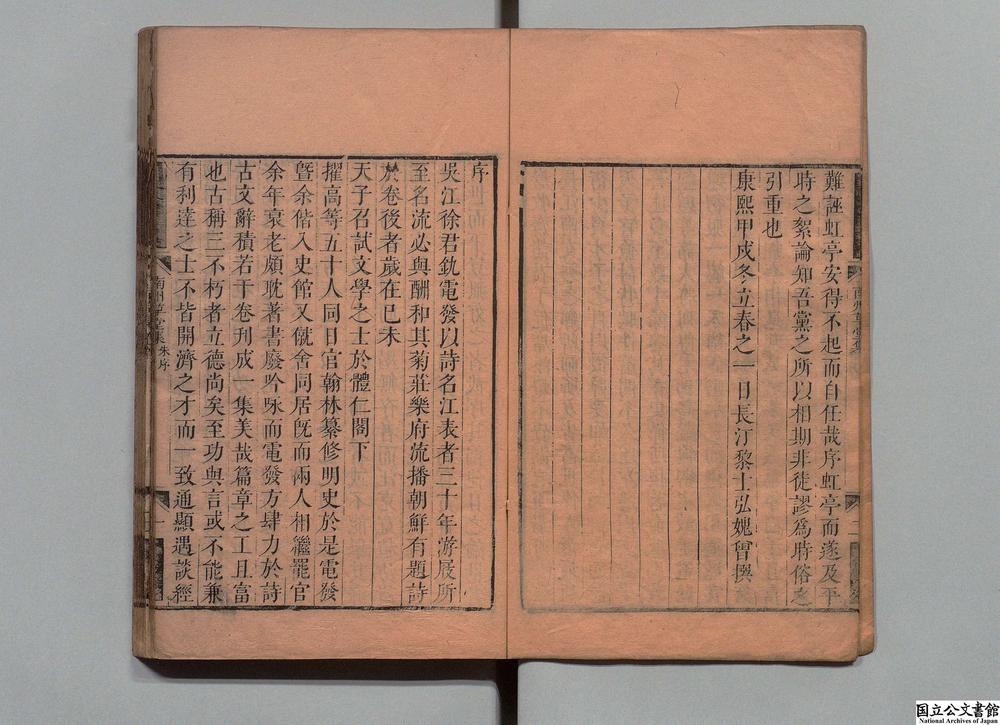 難誣虹亭安得不起而自任哉序虹亭而遂及平
時之絮論知吾黨之所以相期非徒謬為時俗之
引重也
康熙甲戌冬立春之一日長汀黎士弘媿曾撰
序
吳江徐君釚電發以詩名江表者三十年游屐所
至名流必與酬和其菊莊樂府流播朝鮮有題詩
於卷後者歲在己未
天子召試文學之士於體仁閣下
擢高等五十人同日官翰林纂修明史於是電發
曁余偕入史館又僦舍同居旣而兩人相繼罷官
余年衰老頗耽著書廢吟咏而電發方肆力於詩
古文辭積若干卷刋成一集美哉篇章之工且富
也古稱三不朽者立德尚矣至功與言或不能兼
有利達之士不皆開濟之才而一致通顯遇談經
南州草堂集 朱序
一
国立公文書館
National Archives of Japan